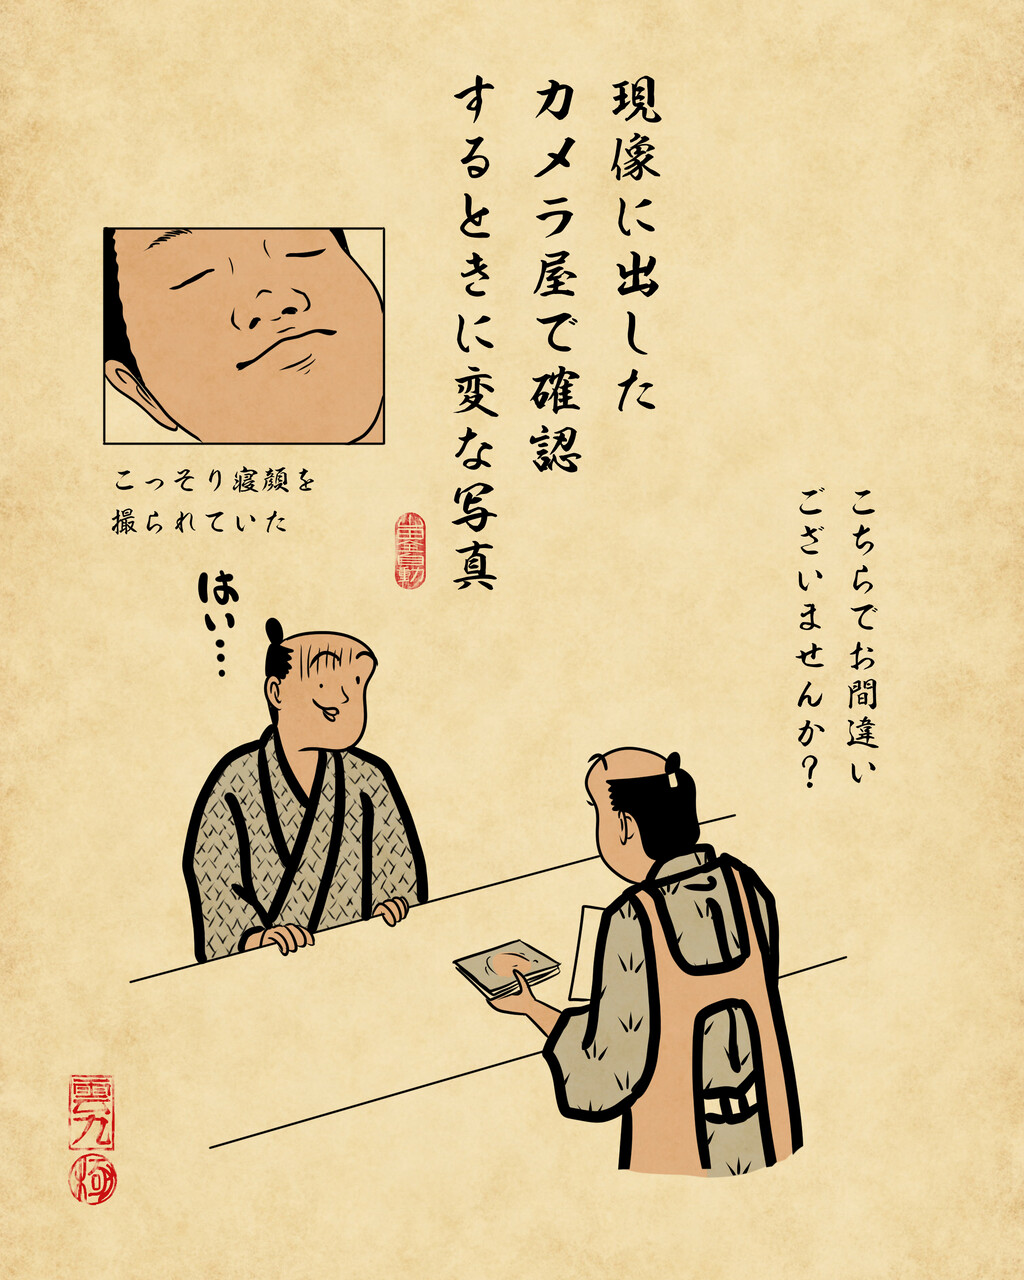 現像に出した
カメラ屋で確認
するときに変な写真
こちらでお間違い
ございませんか?
こっそり寝顔を
撮られていた
はい…
雲九
極